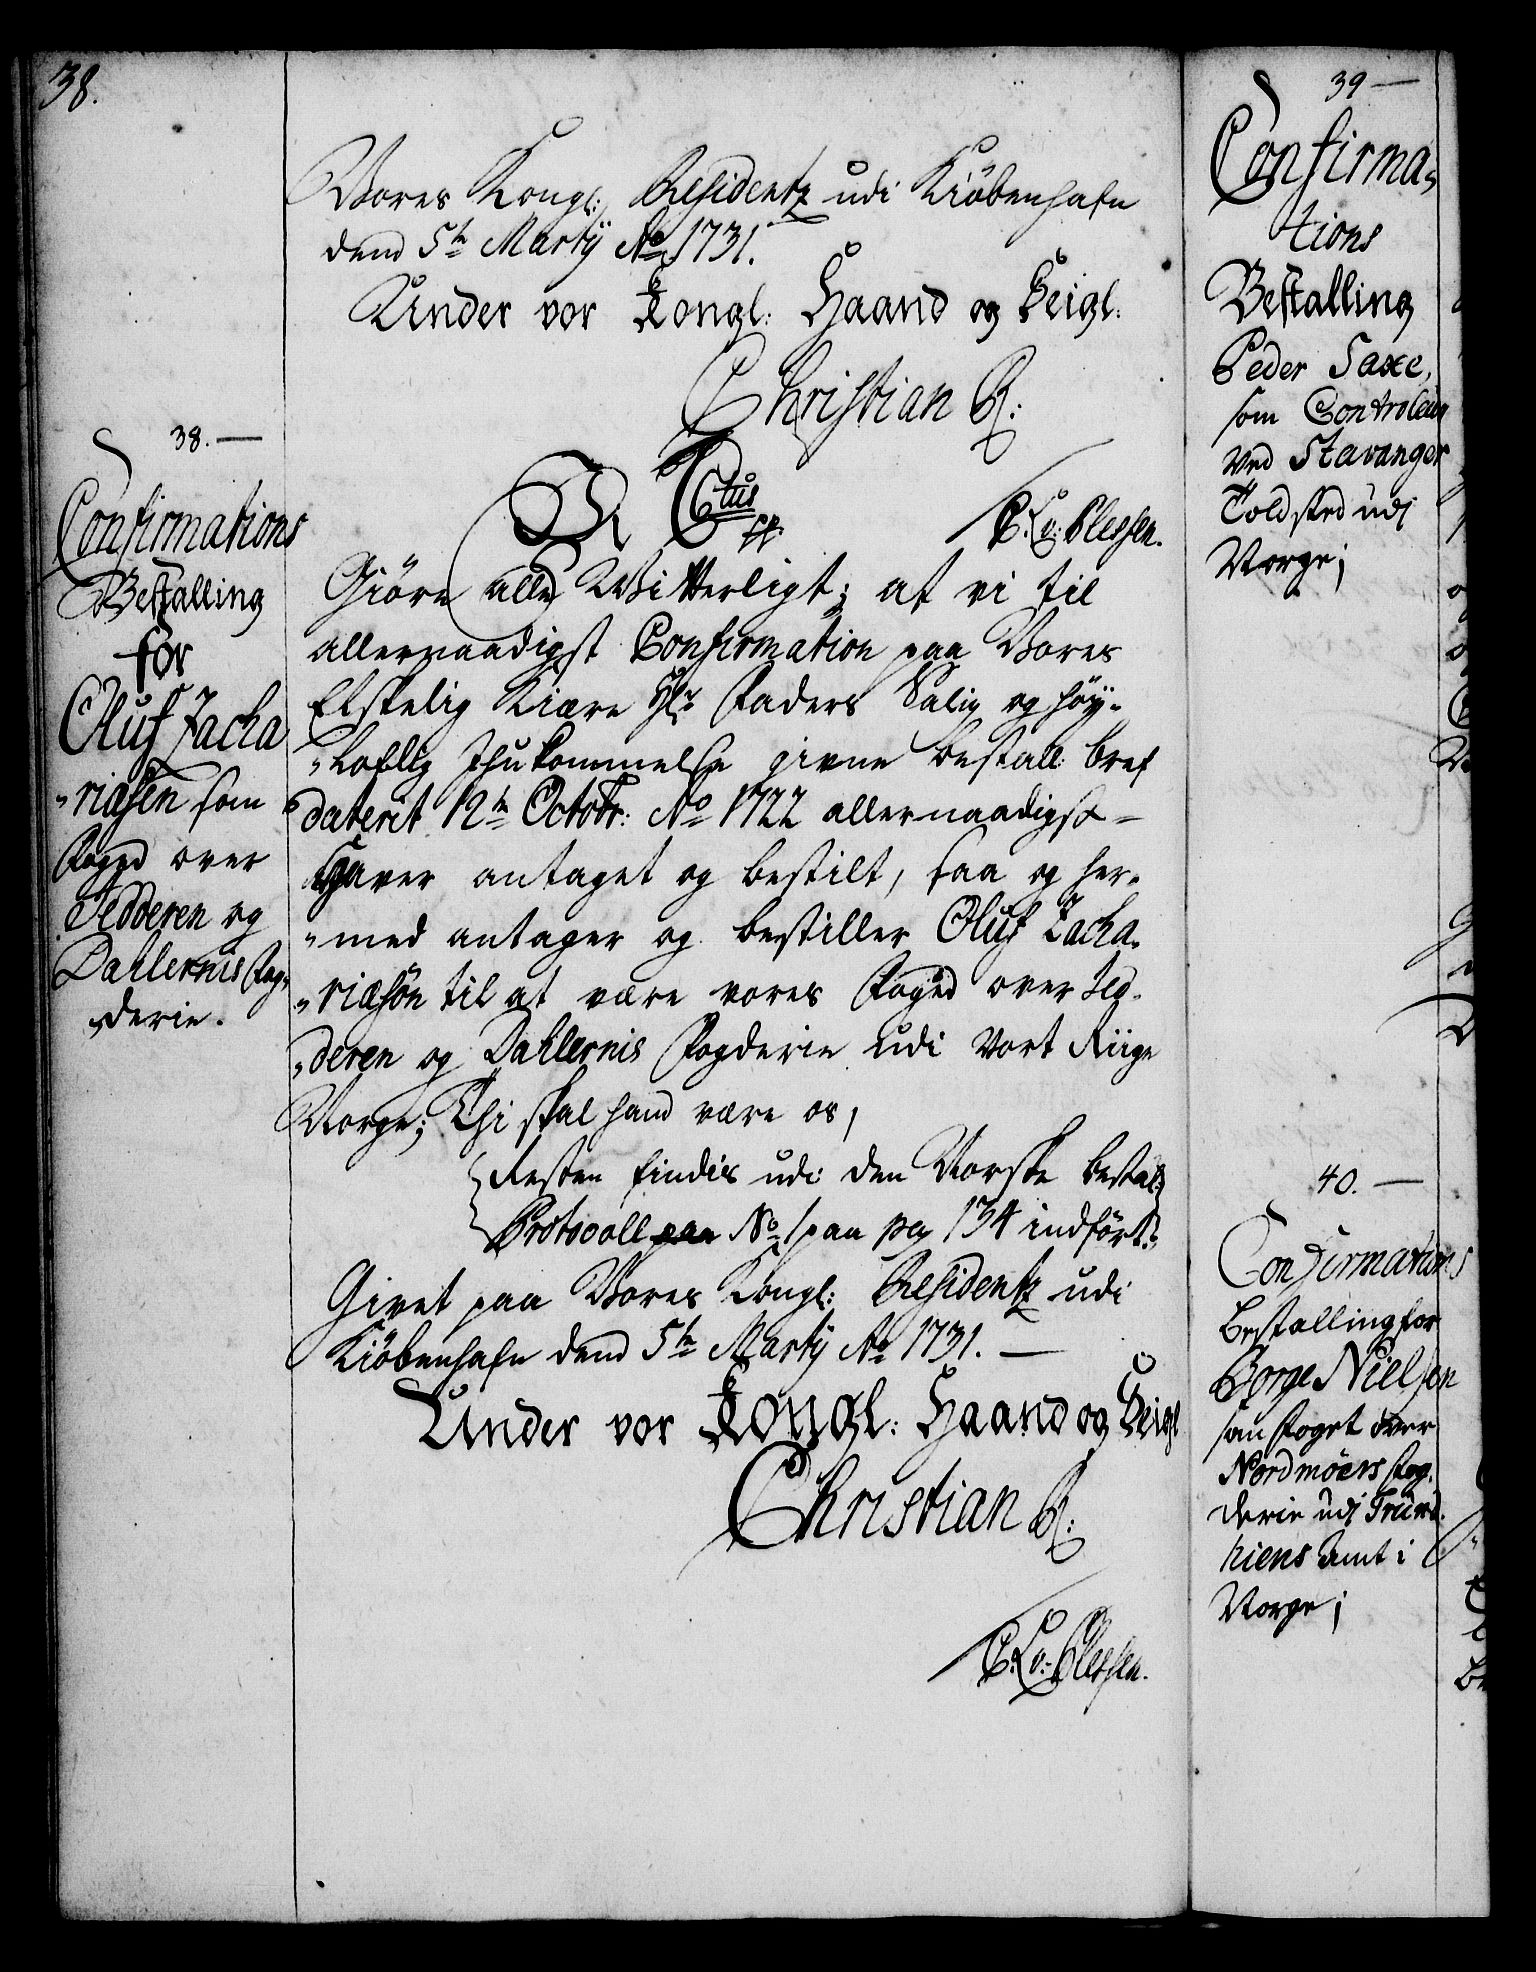 38.
Vores Kongl: Residentz udi Kiöbenhafn
dend 5te Marty Ao 1731.
Under vor Kongl: Haand og Seigl:
Christian R:
C. L. v: Plessen.
38. —
Confirmations
Bestalling
for
Oluf Zacha
"riæsen som
Foged over
Jedderen og
Dahlernis Fog-
derie.
Ctus
Giöre alle Witterligt; at vi til
allernaadigst Confirmation paa Vores
Elskelig Kiære Hr Faders Salig og höy-
"loflig Ihukommelse givne bestall: bref
daterit 12te Octobr: Ao 1722 allernaadigst –
Haver antaget og bestilt, saa og her-
"med antager og bestiller Oluf Zacha-
"riæsön til at være vores Foged over Jed-
"deren og Dahlernis Fogderie udi Vort Riige
Norge; Thi skal hand være os,
Resten findis udi den Norske bestal:
Protocoll paa No 1 paa pag 134 indfört:
Givet paa Vores Kongl: Residentz udi
Kiöbenhafn dend 5te Marty Ao 1731. —
Under vor Kongl: Haand og Seigl
Christian R:
C. L. v: Plessen.
39 —
Confirma-
tions
Bestalling
Peder Saxe,
som Controleur
Ved Stavanger
Toldsted udj
Norge;
40. —
Confirmations
Bestalling for
Börge Nielsen
som Foget over
Nordmöers Fog-
derie udj Trund-
hiems Amt i
Norge;